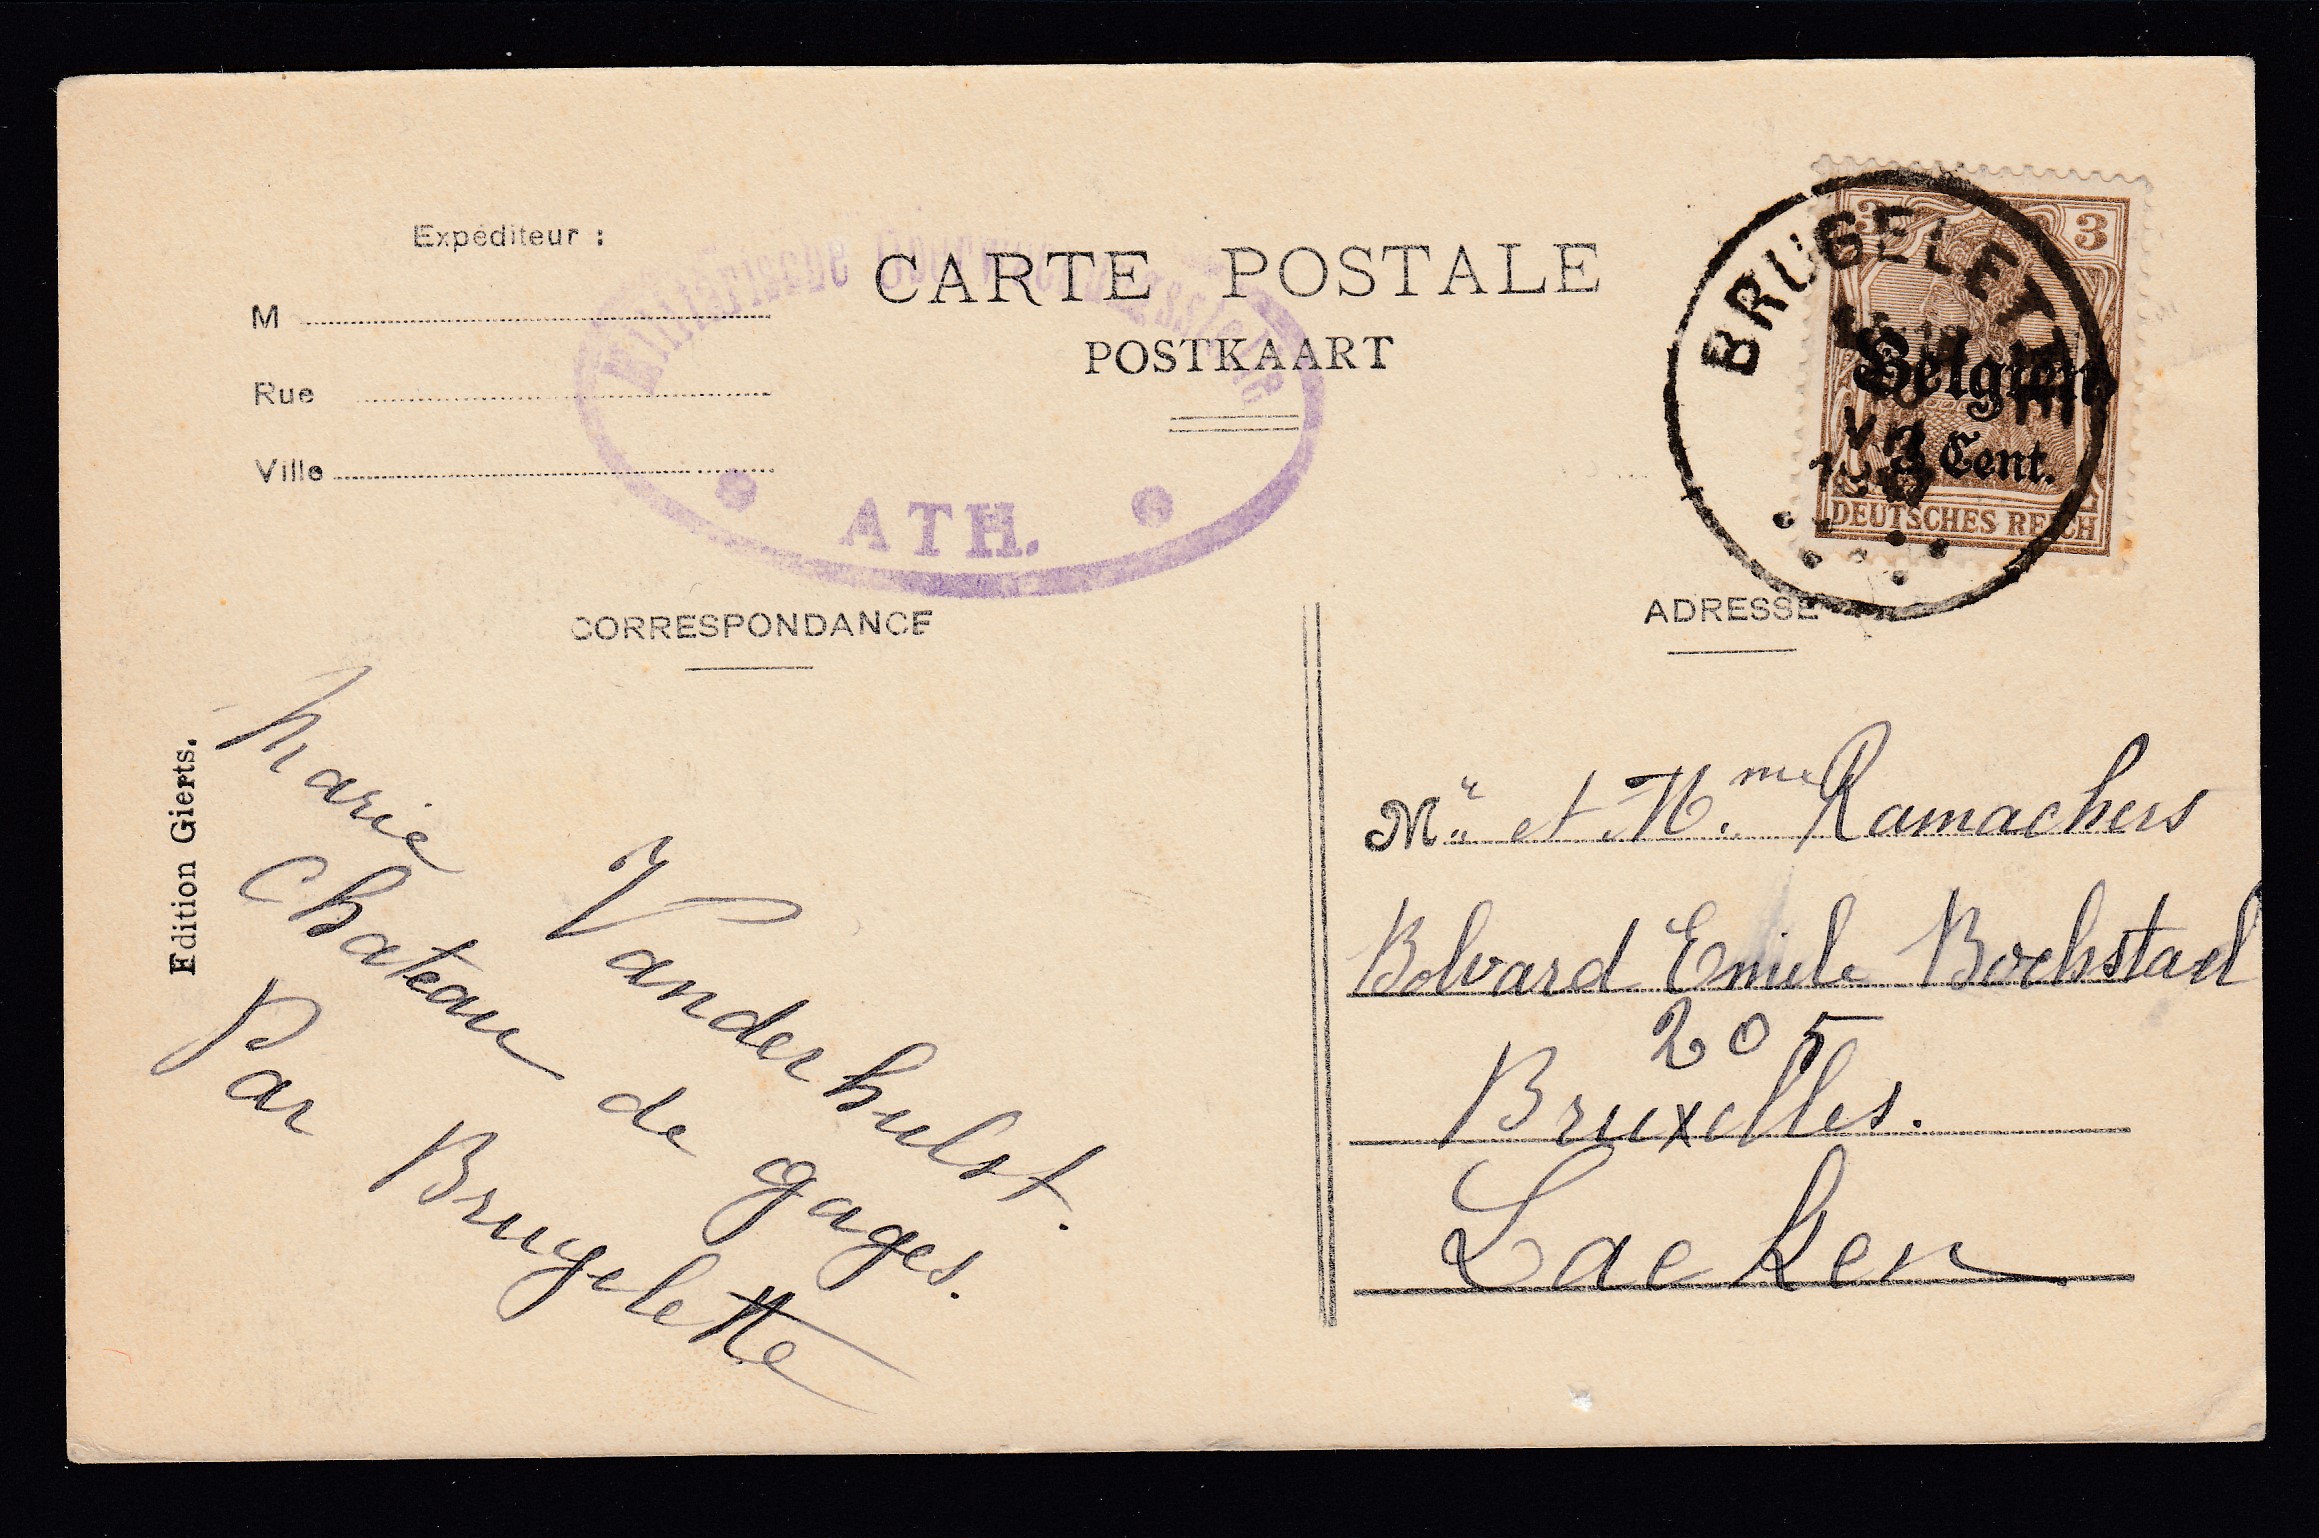 Expéditeur :
M
Rue
Ville
CARTE POSTALE
POSTKAART
Militärische
ATH.
BRUGELETTE
VII
3
3
Belgien
3 Cent.
DEUTSCHES REICH
CORRESPONDANCE
ADRESSE
Edition Gierts.
Marie Vanderhulst.
Chateau de gages.
Par Brugelette
Mr et Mme Ramachers
Bolvard Emile Bockstael
205
Bruxelles.
Laeken